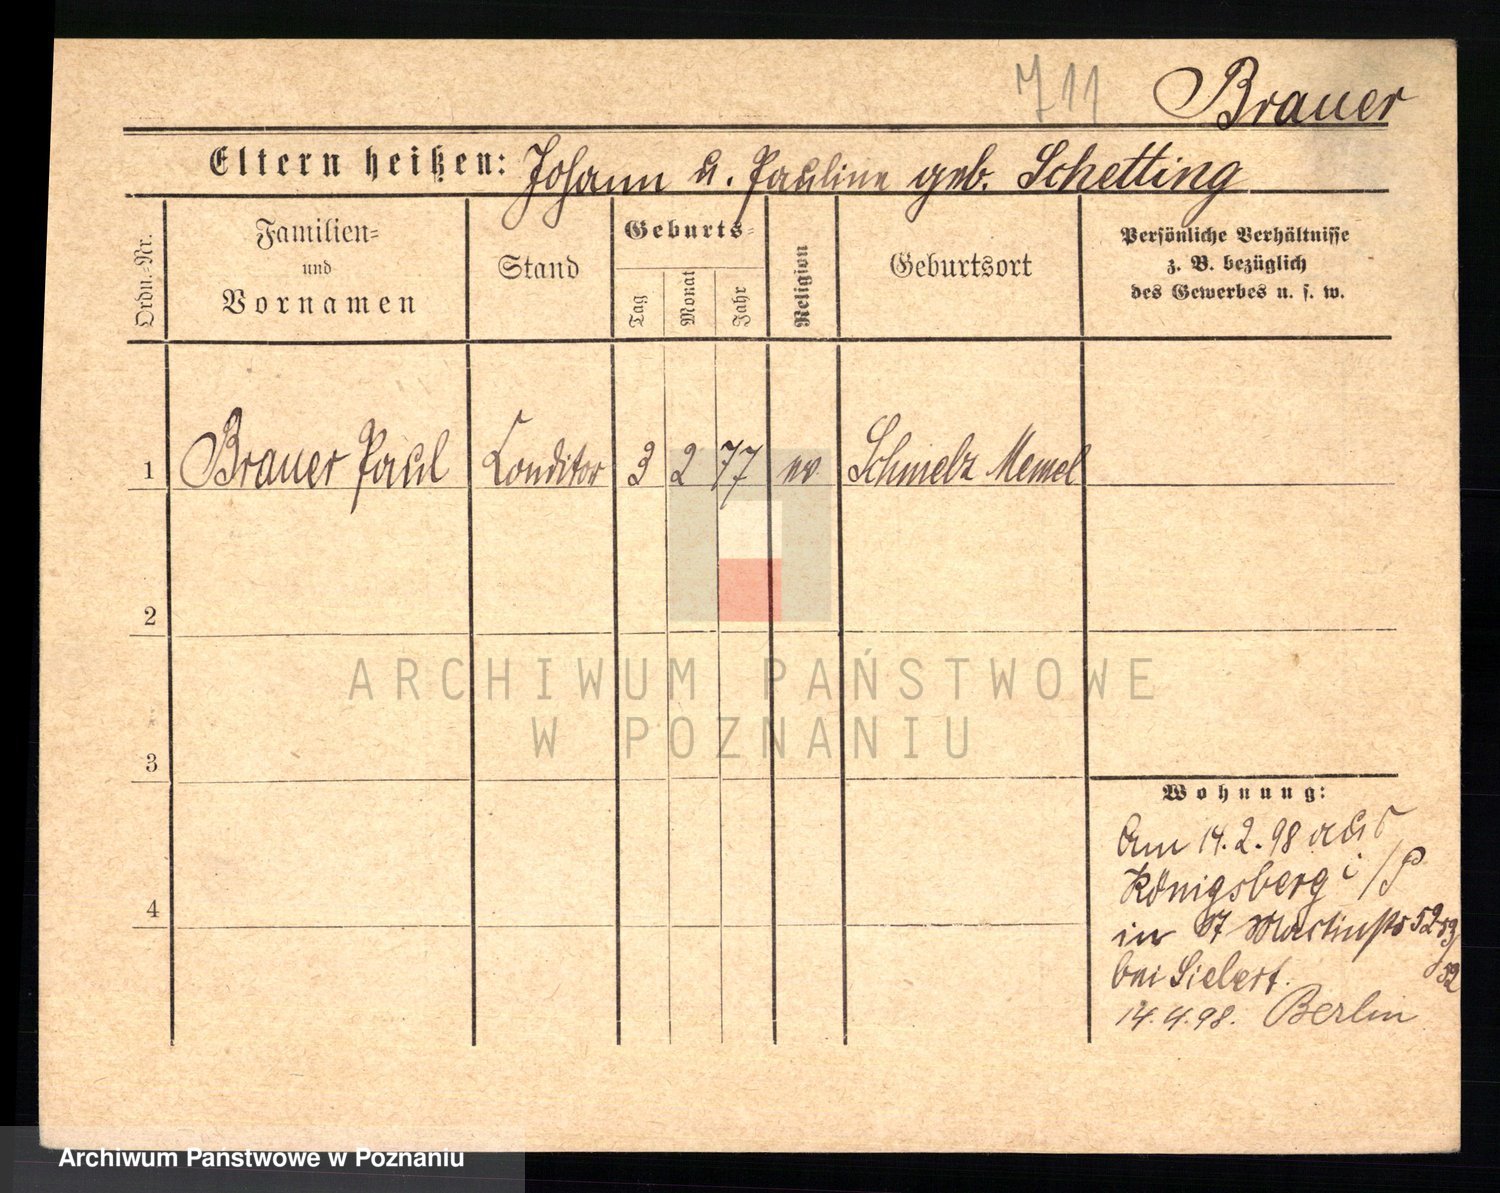 711 Brauer
Eltern heißen: Johann u. Pauline geb. Schetting
Ordn.-Nr.
Familien-
und
Vornamen
Stand
Geburts-
Tag
Monat
Jahr
Religion
Geburtsort
Persönliche Verhältnisse
z. B. bezüglich
des Gewerbes u. s. w.
1 Brauer Paul Conditor 3 2 77 ev Schmelz Memel
2
3
4
Wohnung:
Am 14.2.98 aus
Königsberg i/P
in St Martinstr 52 53/
52
bei Siebert.
14.4.98. Berlin
ARCHIWUM PAŃSTWOWE
W POZNANIU
Archiwum Państwowe w Poznaniu